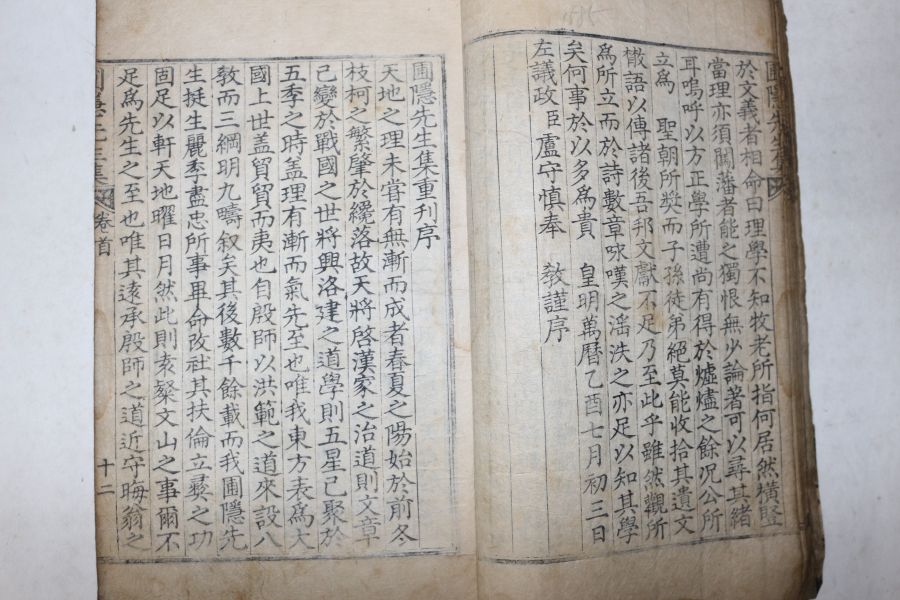 於文義者相命曰理學不知牧老所指何居然橫豎
當理亦須關藩者能之獨恨無少論著可以尋其緒
耳嗚呼以方正學所遭尚有得於爐燼之餘况公所
立爲 聖朝所奬而子孫徒弟絕莫能收拾其遺文
懱語以傳諸後吾邦文獻不足乃至此乎雖然觀所
爲所立而於詩數章咏嘆之滛泆之亦足以知其學
矣何事於以多爲貴 皇明萬曆乙酉七月初三日
左議政臣盧守愼奉 敎謹序
圃隱先生集重刊序
天地之理未嘗有無漸而成者春夏之陽始於前冬
枝柯之繁肇於纔落故天將啓漢家之治道則文章
已變於戰國之世將興洛建之道學則五星已聚於
五季之時盖理有漸而氣先至也唯我東方表爲大
國上世盖貿貿而夷也自殷師以洪範之道來設八
敎而三綱明九疇叙矣其後數千餘載而我圃隱先
生挺生麗季盡忠所事畢命改社其扶倫立彛之功
固足以軒天地曜日月然此則袁粲文山之事爾不
足爲先生之至也唯其遠承殷師之道近守晦翁之
圃隱先生集 卷首 十二